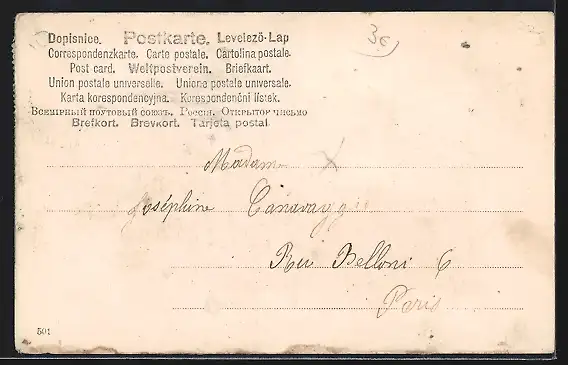 Dopisnice. Postkarte. Levelező-Lap
Correspondenzkarte. Carte postale. Cartolina postale.
Post card. Weltpostverein. Briefkaart.
Union postale universelle. Unione postale universale.
Karta korespondencyjna. Korespondenční lístek.
Всемірный почтовый союзъ. Россія. Открытое письмо
Brefkort. Brevkort. Tarjeta postal.
3€
Madame
Joséphine Canavaggio
Rue Belloni 6
Paris
501